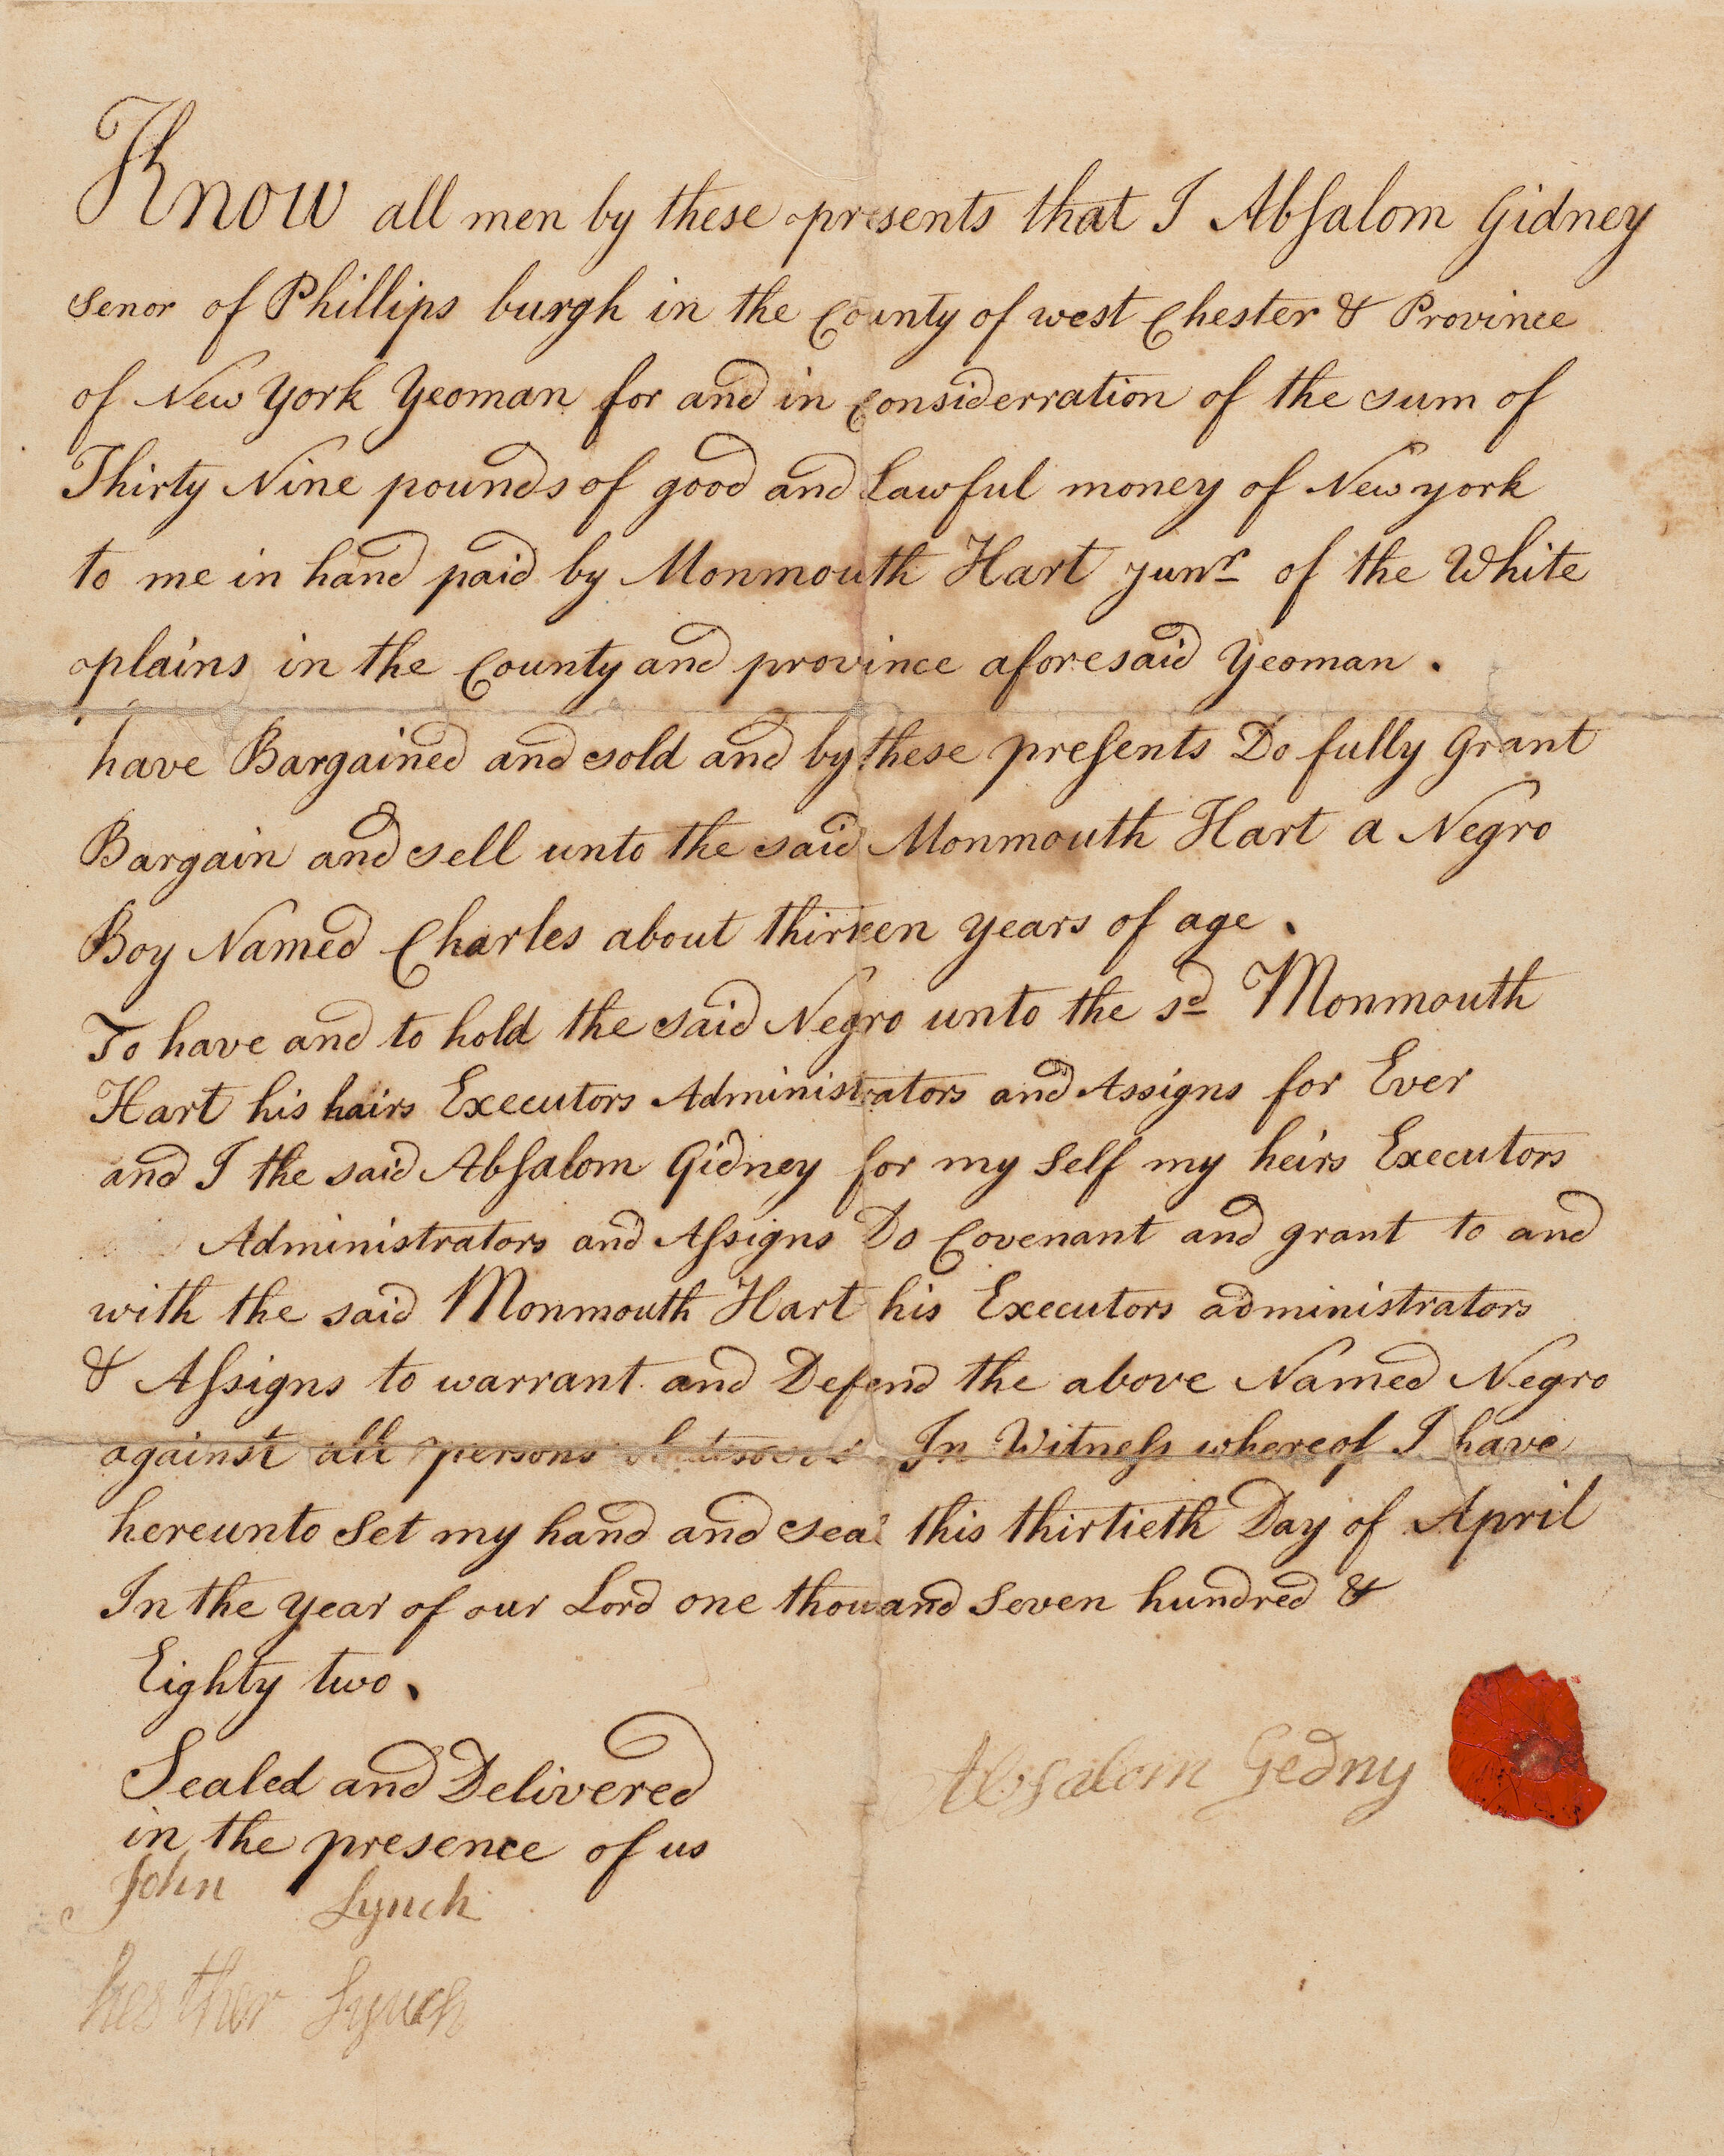 Know all men by these presents that I Abſalom Gidney
Senor of Phillips burgh in the County of west Chester & Province
of New York Yeoman for and in Considerration of the sum of
Thirty Nine pounds of good and Lawful money of New york
to me in hand paid by Monmouth Hart junr of the White
plains in the County and province aforesaid Yeoman .
have Bargained and sold and by these preſents Do fully Grant
Bargain and sell unto the said Monmouth Hart a Negro
Boy Named Charles about thirteen years of age .
To have and to hold the said Negro unto the sd Monmouth
Hart his hairs Executors Administrators and Assigns for Ever
and I the said Abſalom Gidney for my Self my heirs Executors
Administrators and Aſsigns Do Covenant and grant to and
with the said Monmouth Hart his Executors administrators
& Aſsigns to warrant and Defend the above Named Negro
against all persons In Witneſs whereof I have
hereunto Set my hand and seal this thirtieth Day of April
In the year of our Lord one thousand Seven hundred &
Eighty two .
Sealed and Delivered
in the presence of us
Abſalom Gedny
John Lynch
hesther Lynch